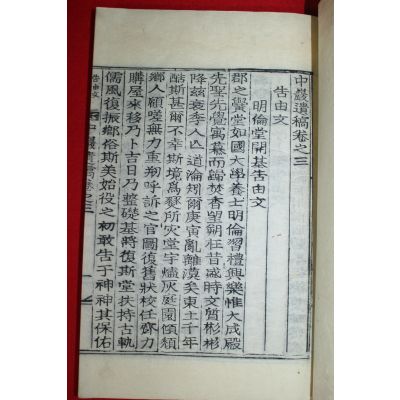 中巖遺稿卷之三
告由文
明倫堂開基告由文
郡之黌堂如國大學養士明倫習禮興樂惟大成殿
先聖先覺寓而歸焚香望朔在昔盛時文質彬彬
降玆衰季人亡道淪矧爾庚寅亂離瘼矣東土千年
酷斯甚爾不幸斯境爲豕所穴堂宇燼灰庭園傾頹
鄕人顧嗟無力重刱呼訴之官圖復舊狀校任齊力
購屋來移乃卜吉日乃整礎基將復斯堂扶持古軌
儒風復振鄕俗斯美始役之初敢告于神神其保佑
告由文